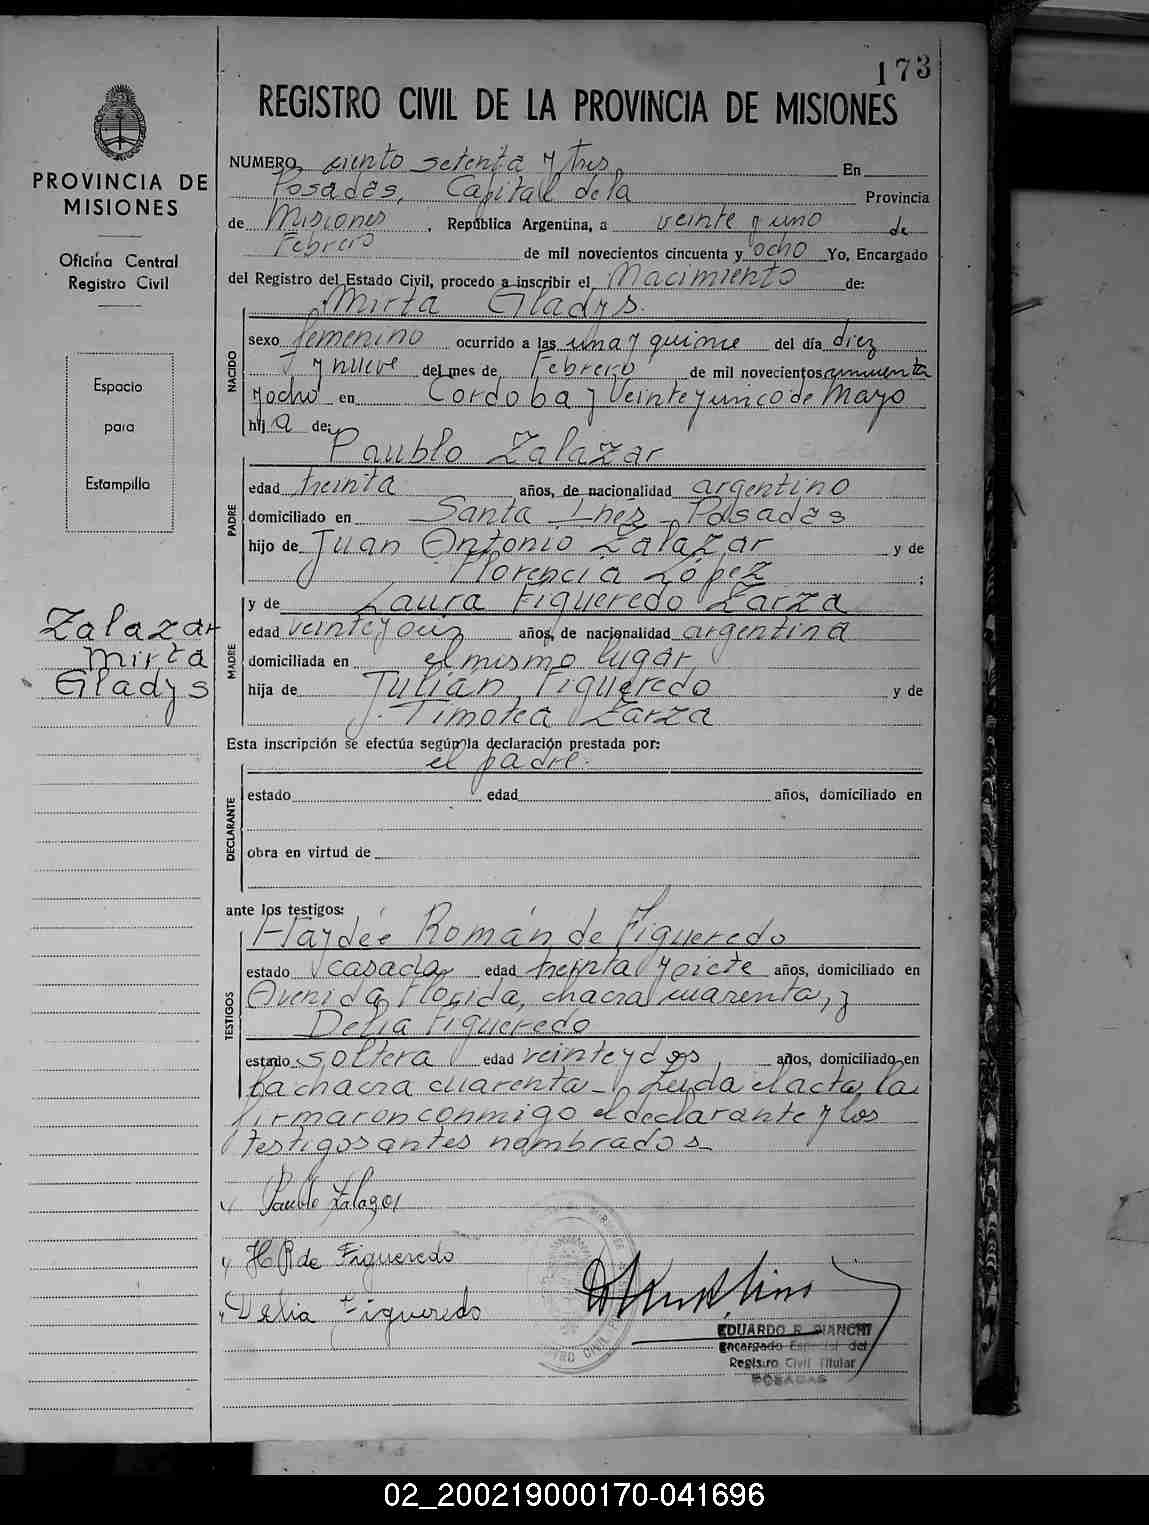 173
REGISTRO CIVIL DE LA PROVINCIA DE MISIONES
PROVINCIA DE
MISIONES
Oficina Central
Registro Civil
Espacio
para
Estampilla
Zalazar
Mirta
Gladys
NUMERO ciento setenta y tres En
Posadas, Capital de la Provincia
de Misiones, República Argentina, a veinte y uno de
Febrero de mil novecientos cincuenta y ocho Yo, Encargado
del Registro del Estado Civil, procedo a inscribir el Nacimiento de:
Mirta Gladys.
NACIDO
sexo femenino ocurrido a las una y quince del día diez
y nueve del mes de Febrero de mil novecientos cincuenta
y ocho en Córdoba y Veinte y cinco de Mayo
hija de:
Paublo Zalazar
PADRE
edad treinta años, de nacionalidad argentino
domiciliado en Santa Inés - Posadas
hijo de Juan Antonio Zalazar y de
Florencia López ;
MADRE
y de Laura Figueredo Zarza
edad veinte y seis años, de nacionalidad argentina
domiciliada en el mismo lugar,
hija de Julián Figueredo y de
Timotea Zarza
Esta inscripción se efectúa según la declaración prestada por:
el padre.
DECLARANTE
estado edad años, domiciliado en
obra en virtud de
ante los testigos:
Haydée Román de Figueredo
TESTIGOS
estado casada edad treinta y siete años, domiciliado en
Avenida Florida, chacra cuarenta, y
Delia Figueredo
estado soltera edad veinte y dos, años, domiciliado en
la chacra cuarenta - Leida el acta, la
firmaron conmigo el declarante y los
testigos antes nombrados -
Paublo Zalazar
H R de Figueredo
Delia Figueredo
EDUARDO R. BIANCHI
Encargado Especial del
Registro Civil Titular
POSADAS
02_200219000170-041696